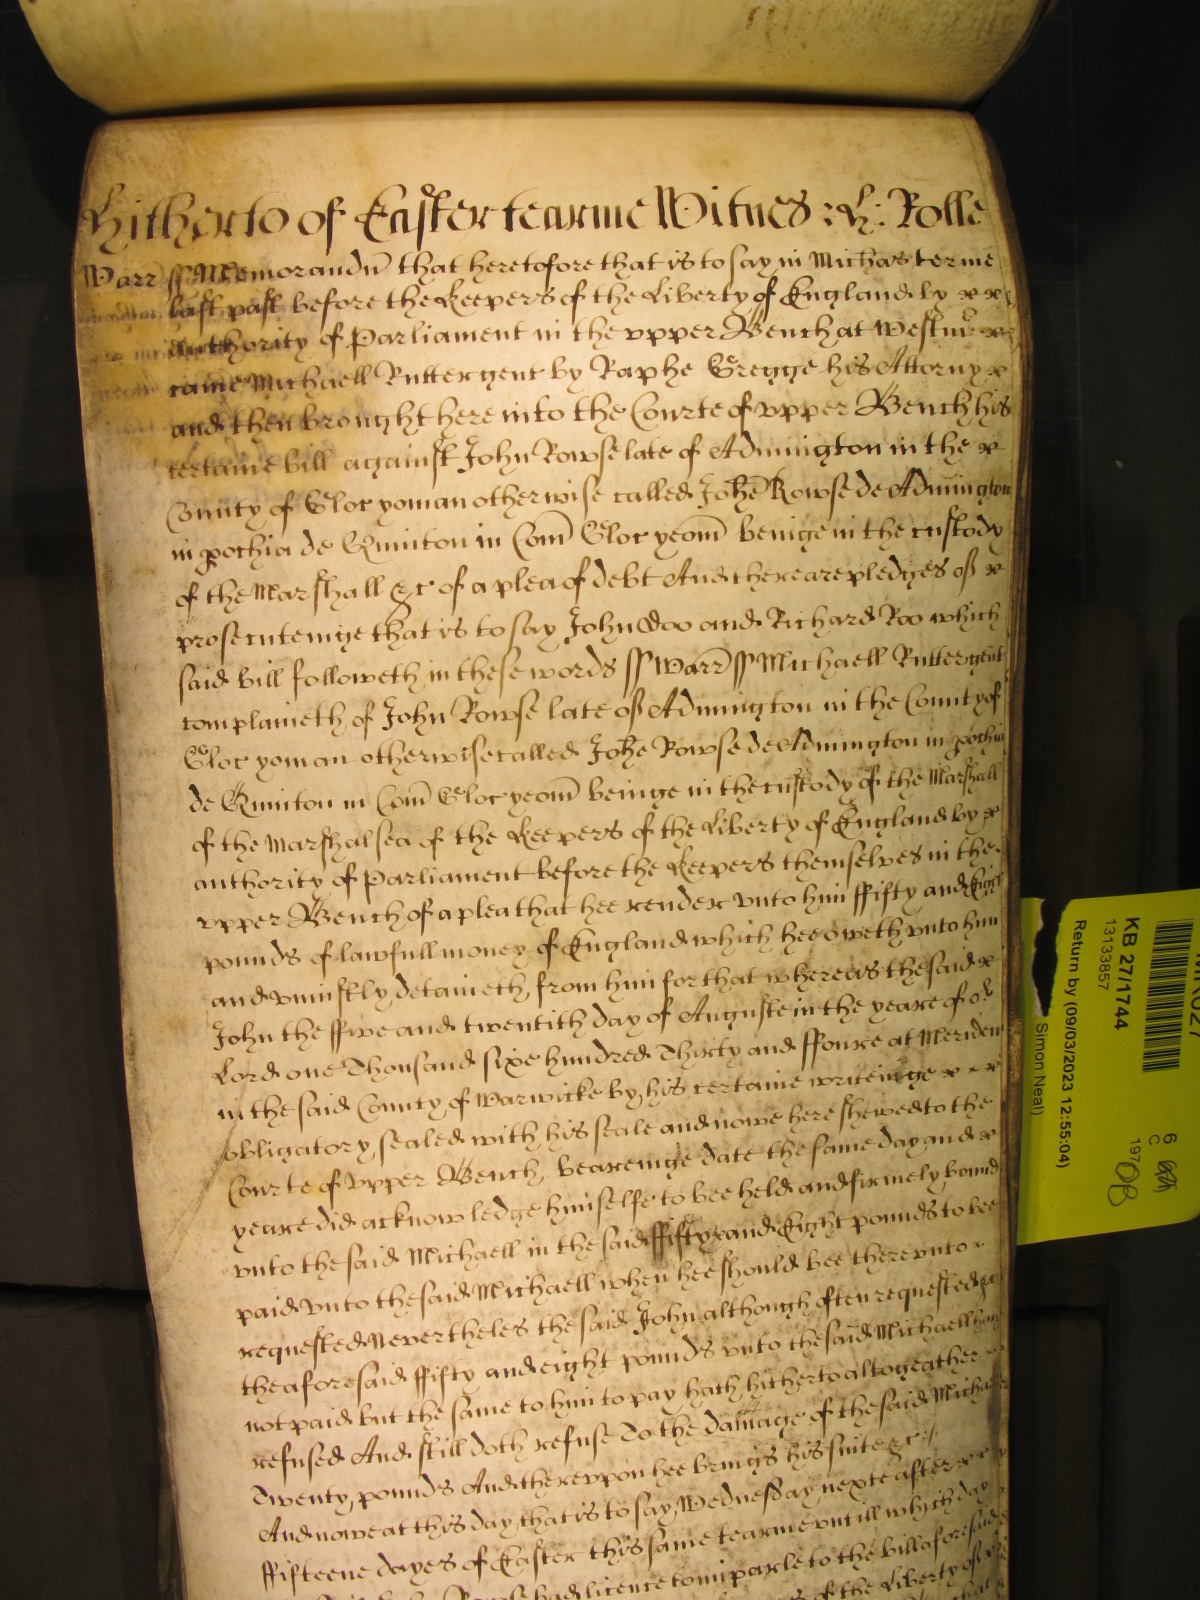 Hitherto of Easter tearme Witnes : H : Rolle
Warr ss Memorandū that heretofore that is to say in Michas terme
last past before the Keepers of the Liberty of England by x x
authority of Parliament in the vpper Bench at Westm̄ x
came Michaell Rutter gent by Raphe Gregge his Attorny x
and then brought here into the Courte of vpper Bench his
certaine bill against John Rowse late of Admington in the x
County of Gloc yoman otherwise called Johē Rowse de Admington
in pochia de Quinton in Com̄ Gloc yeom̄ beinge in the custody
of the Marshall &c of a plea of debt And there are pledges of x
prosecuteinge that is to say John Doo and Richard Roo which
said bill followeth in these words ss Warr ss Michaell Rutter gent
complaineth of John Rowse late of Admington in the County of
Gloc yoman otherwise called Johē Rowse de Admington in pochia
de Quinton in Com̄ Gloc yeom̄ beinge in the custody of the Marshall
of the Marshalsea of the Keepers of the Liberty of England by x
authority of Parliament before the Keepers themselves in the
vpper Bench of a plea that hee render vnto him ffifty and Eight
pounds of lawfull money of England which hee oweth vnto him
and vniustly detaineth from him for that whereas the said x
John the ffive and twentith day of Auguste in the yeare of or
Lord one Thousand sixe hundred Thirty and ffoure at Meriden
in the said County of Warwicke by his certaine writeinge x x x
obligatory sealed with his seale and nowe here shewed to the
Courte of vpper Bench beareinge date the same day and x
yeare did acknowledge himselfe to bee held and firmely bound
vnto the said Michaell in the said ffifty and Eight pounds to bee
paid vnto the said Michaell when hee should bee therevnto
requested Nevertheles the said John although often requested &c
the aforesaid ffifty and eight pounds vnto the said Michaell hath
not paid but the same to him to pay hath hitherto altogeather
refused And still doth refuse To the damage of the said Michaell
Twenty pounds And therevpon hee brings his suite &c
And nowe at this day that is to say Wednesday nexte after x x
ffifteene dayes of Easter this same tearme vntill which day
had licence to imparle to the bill aforesaid
of the Liberty of
KB 27/1744
13133857
Return by (09/03/2023 12:55:04)
Simon Neal)
6
C
197